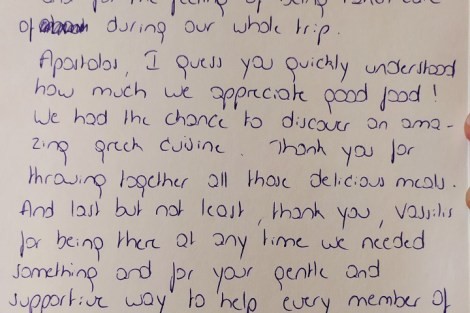 and for the feeling of being taken care
of during our whole trip.
Apostolos, I guess you quickly understood
how much we appreciate good food!
We had the chance to discover an ama-
zing greek cuisine. Thank you for
throwing together all those delicious meals.
And last but not least, thank you, Vassilis
for being there at any time we needed
something and for your gentle and
supportive way to help every member of